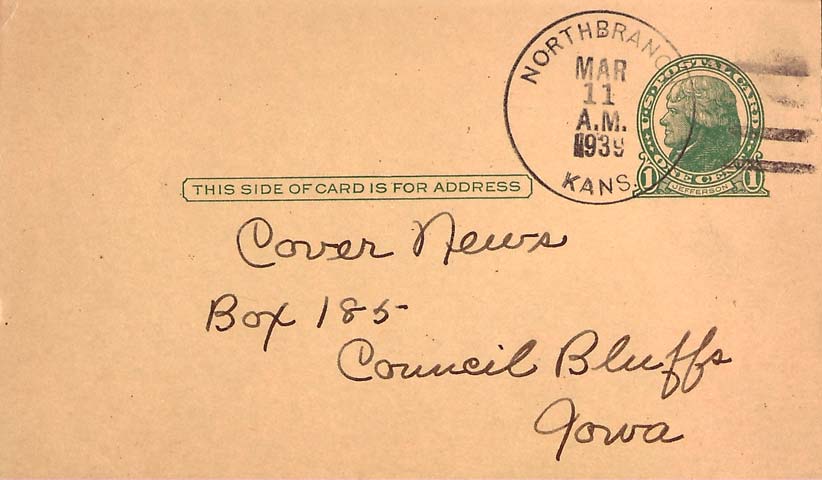 NORTHBRANC
MAR
11
A.M.
1939
KANS.
U.S. POSTAL CARD
ONE CENT
1 JEFFERSON 1
THIS SIDE OF CARD IS FOR ADDRESS
Cover News
Box 185
Council Bluffs
Iowa